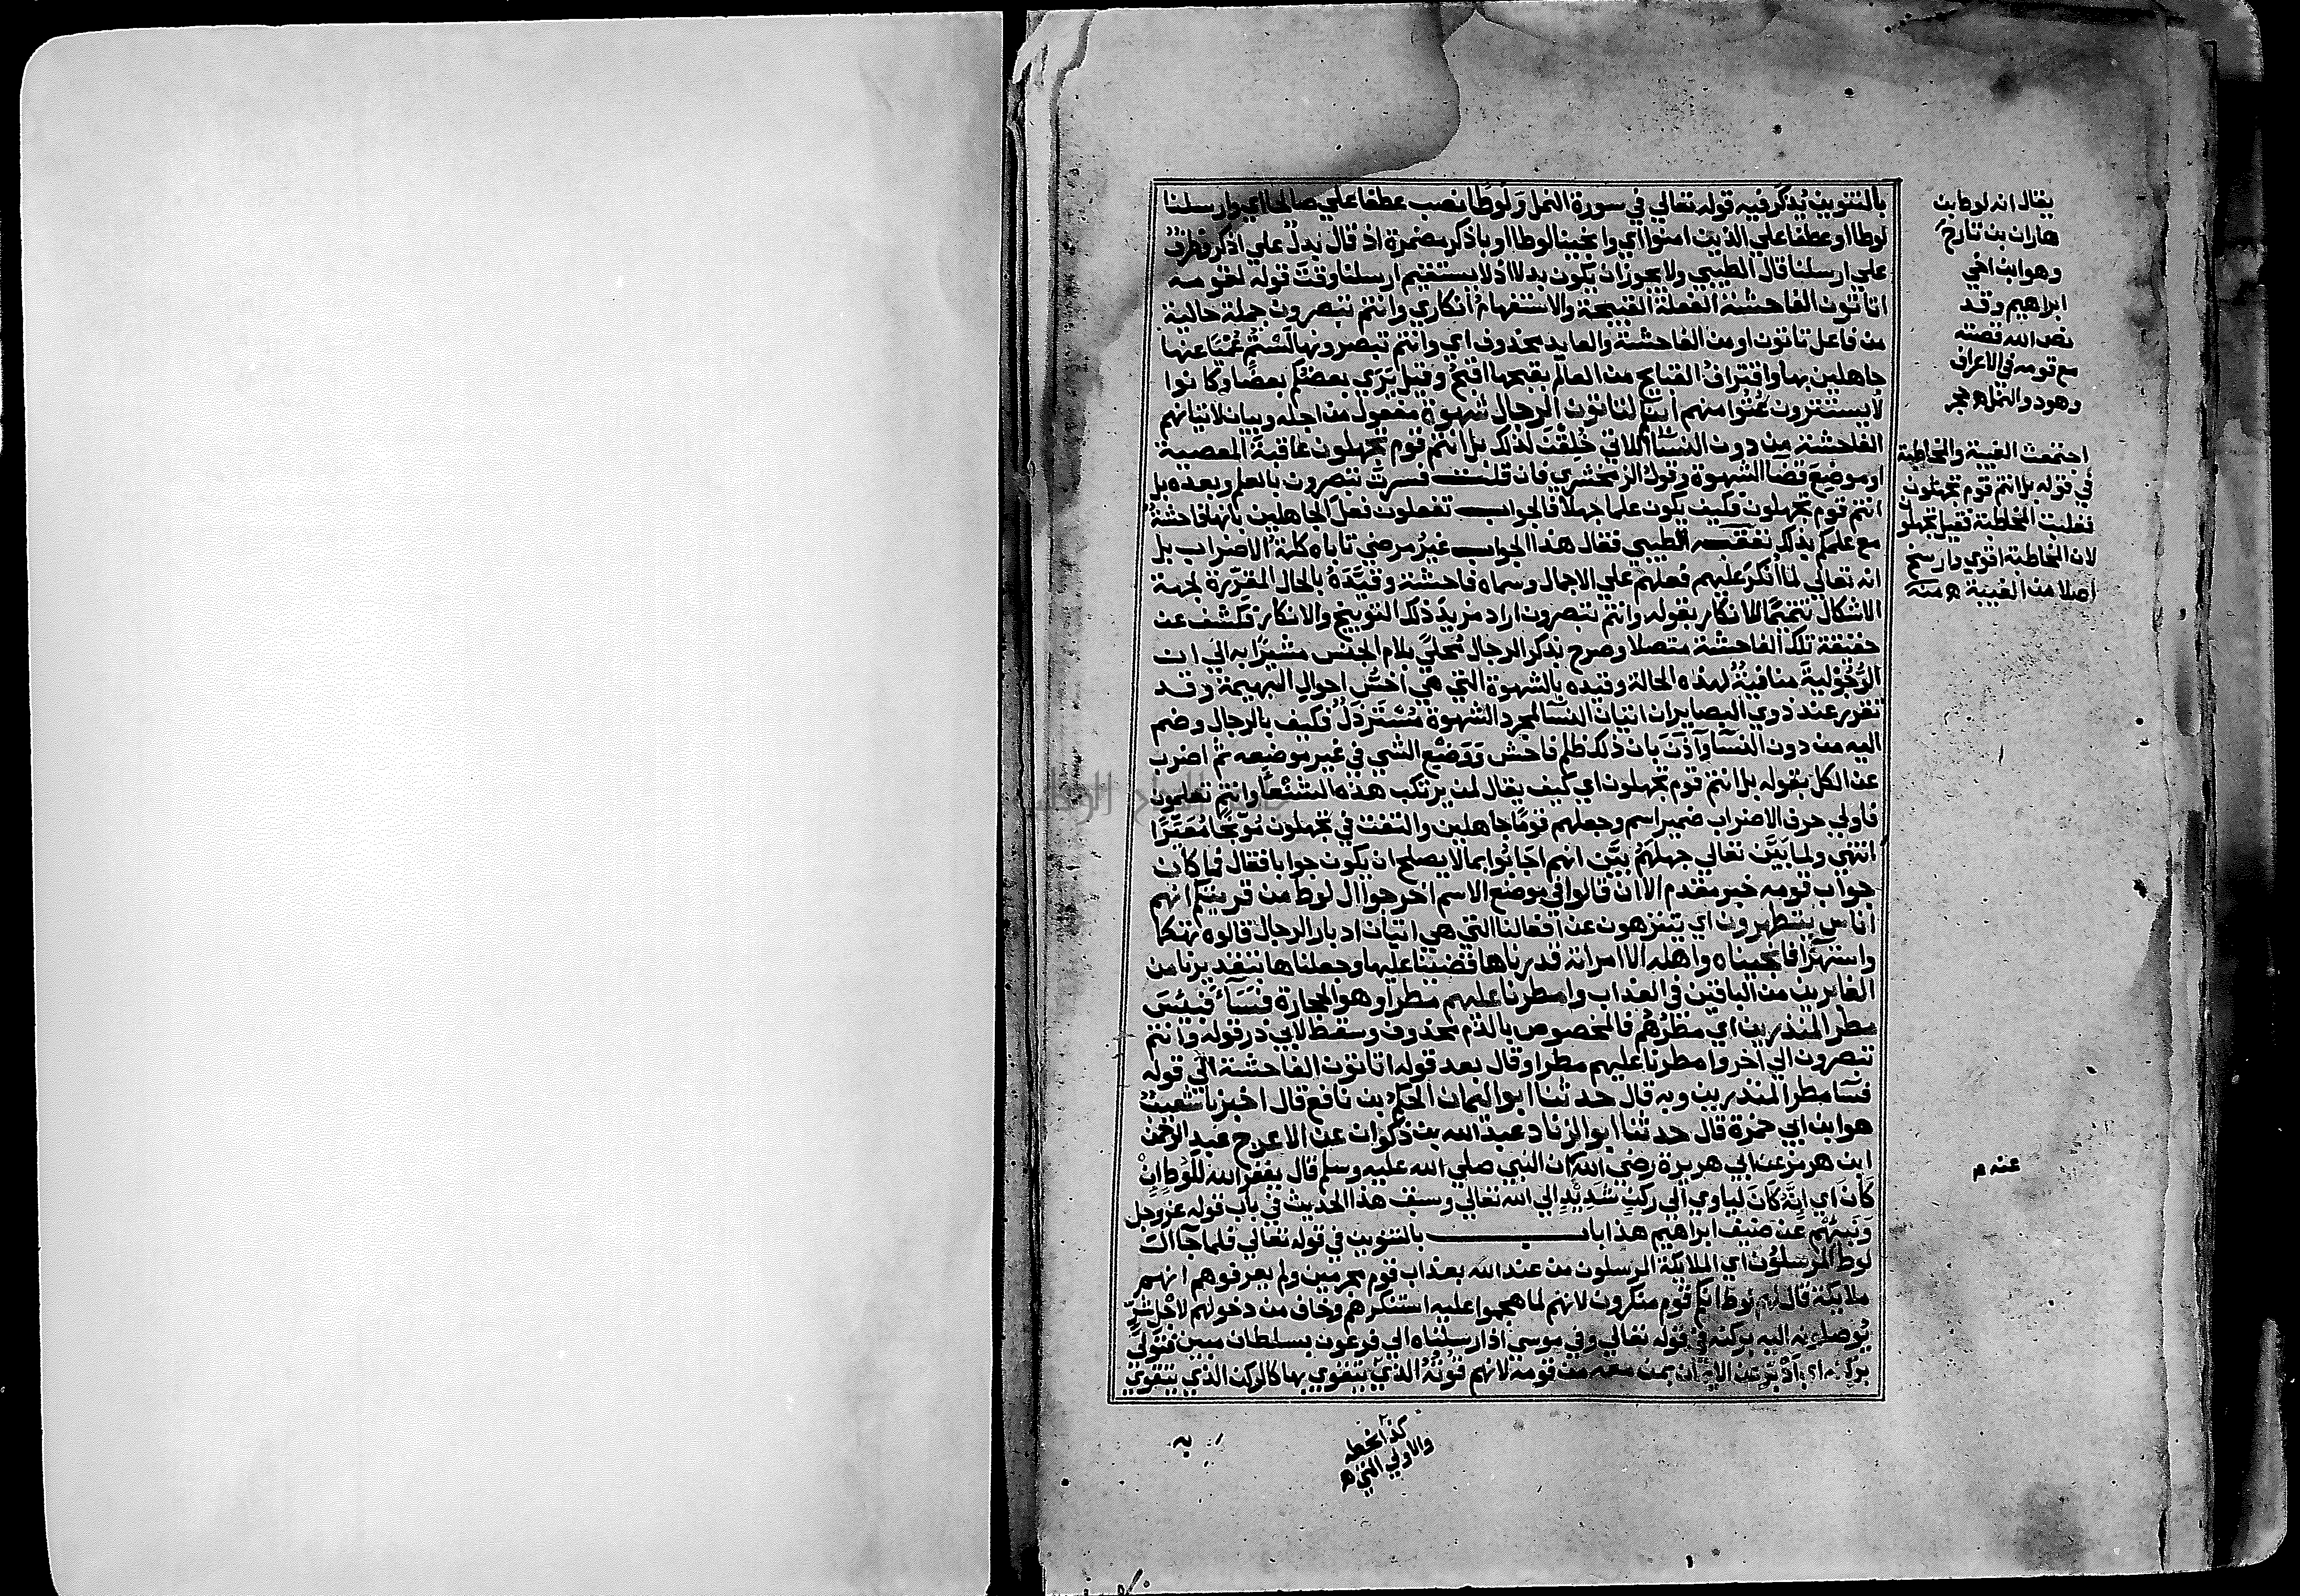 بالتنوين يذكر فيه قوله تعالي في سورة النمل ولوطا نصب عطفا علي صالحا اي وارسلنا
لوطا او عطفا علي الذين امنوا اي وانجينا لوطا او باذكر مضمرة اذ قال بدل علي اذكر وظرف
علي ارسلنا قال الطيبي ولا يجوز ان يكون بدلا اذ لا يستقيم ارسلنا وقت قوله لقومه
اتاتون الفاحشة الفعلة القبيحة والاستفهام انكاري وانتم تبصرون جملة حالية
من فاعل تاتون او من الفاحشة والعايد محذوف اي وانتم تبصرونها لستم عميا عنها
جاهلين بها واقتراف القبايح من العالم بقبحها اقبح وقيل يري بعضكم بعضا وكانوا
لا يستترون عتوا منهم اينكم لتاتون الرجال شهوة مفعول من اجله وبيان لاتيانهم
الفاحشة من دون النسآ اللاتي خلقن لذلك بل انتم قوم تجهلون عاقبة المعصية
او موضع قضا الشهوة وقول الزمخشري فان قلت فسرت تبصرون بالعلم وبعده بل
انتم قوم تجهلون فكيف يكون علما جهلا فالجواب تفعلون فعل الجاهلين بانها فاحشة
مع علمكم بذلك تعقبه الطيبي فقال هذا الجواب غير مرضي تاباه كلمة الاضراب بل
انه تعالي لما انكر عليهم فعلهم علي الاجمال وسماه فاحشة وقيده بالحال المقررة لجهة
الاشكال تتميما للانكار بقوله وانتم تبصرون اراد مزيد ذلك التوبيخ والانكار فكشف عن
حقيقة تلك الفاحشة متصلا وصرح بذكر الرجال محلي بلام الجنس مشيرا به الي ان
الرجولية منافية لهذه الحالة وقيده بالشهوة التي هي اخس احوال البهيمة وقد
تقرر عند ذوي البصاير ان اتيان النسآ لمجرد الشهوة مسترذل فكيف بالرجال وضم
اليه من دون النسآ وآذن بان ذلك ظلم فاحش ووضع الشي في غير موضعه ثم اضرب
عن الكل بقوله بل انتم قوم تجهلون اي كيف يقال لمن يرتكب هذه الشنعا وانتم تعلمون
فاولي حرف الاضراب ضمير اسم وجعلهم قوما جاهلين والتفت في تجهلون موبخا معيرا
انتهي ولما بين تعالي جهلهم بين انهم اجابوا بما لا يصلح ان يكون جوابا فقال فما كان
جواب قومه خبر مقدم الا ان قالوا في موضع الاسم اخرجوا ال لوط من قريتكم انهم
اناس يتطهرون اي يتنزهون عن افعالنا التي هي اتيان ادبار الرجال قالوه تهكما
واستهزآ فانجيناه واهله الا امراته قدرناها قضينا عليها وجعلناها بتقديرنا من
الغابرين من الباقين في العذاب وامطرنا عليهم مطرا وهو الحجارة فسآء فبئس
مطر المنذرين اي مطرهم فالمخصوص بالذم محذوف وسقط لابي ذر قوله وانتم
تبصرون الي اخر وامطرنا عليهم مطرا وقال بعد قوله اتاتون الفاحشة الي قوله
فسآ مطر المنذرين وبه قال حدثنا ابو اليمان الحكم بن نافع قال اخبرنا شعيب
هو ابن ابي حمزة قال حدثنا ابو الزناد عبد الله بن ذكوان عن الاعرج عبد الرحمن
ابن هرمز عن ابي هريرة رضي الله ان النبي صلي الله عليه وسلم قال يغفر الله للوط ان
كان اي انه كان لياوي الي ركن شديد الي الله تعالي وسبق هذا الحديث في باب قوله عز وجل
ونبئهم عن ضيف ابراهيم هذا باب بالتنوين في قوله تعالي فلما جآ ال
لوط المرسلون اي الملايكة المرسلون من عند الله بعذاب قوم مجرمين ولم يعرفوهم انهم
ملايكة قال لهم لوط انكم قوم منكرون لانهم لما هجموا عليه استنكرهم وخاف من دخولهم لاجل شر
يوصلونه اليه بركنه في قوله تعالي وفي موسي اذ ارسلناه الي فرعون بسلطان مبين فتولي
بركنه اي ادبر عن الايمان بمن معه من قومه لانهم قوته الذي يتقوي بها كالركن الذي يتقوي
به
يقال انه لوط بن
هاران بن تارح
وهو ابن اخي
ابراهيم وقد
نص الله قصته
مع قومه في الاعراف
وهود والنمل
اجتمعت الغيبة والمخاطبة
في قوله بل انتم قوم تجهلون
فغلبت المخاطبة فقيل تجهلو
لان المخاطبة اقوي وارسخ
اصلا من الغيبة ه منه
عنه م
كذا بخطه
والاولي التي ه